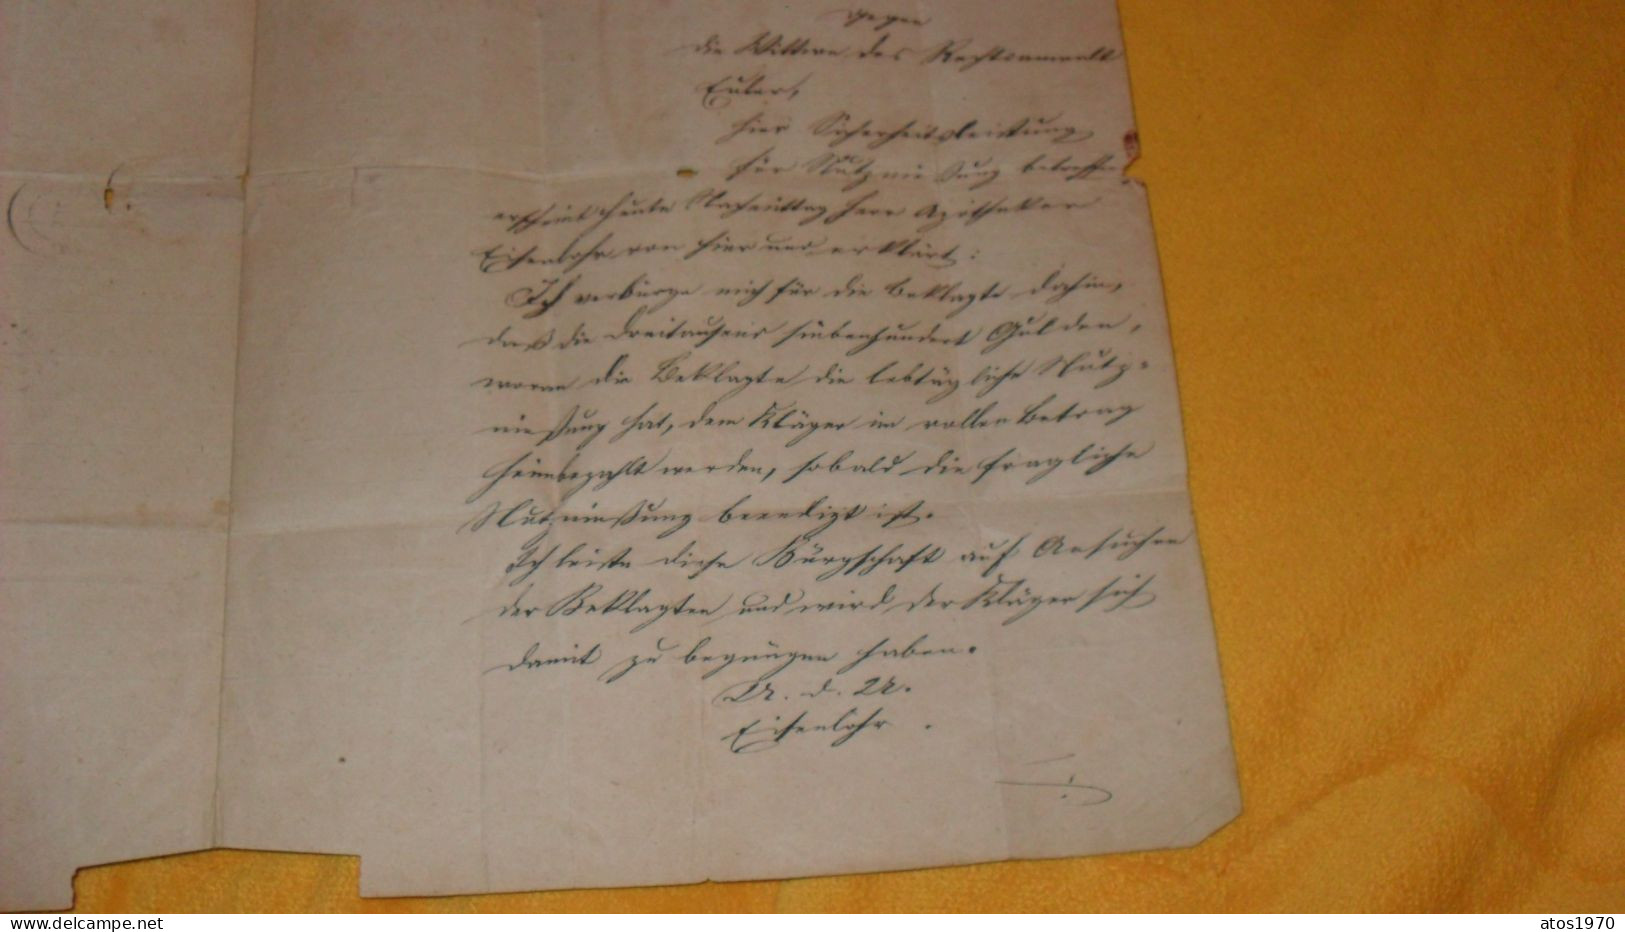 gegen
die Wittwe des Rechtsanwalt
Euler,
hier Sicherheitsleistung
für Nutznießung betreffen
erscheint heute Nachmittag Herr Apotheker
Eisenlohr von hier und erklärt:
Ich verbürge mich für die Beklagte dahin,
daß die dreitausend siebenhundert Gulden,
woran die Beklagte die lebtägliche Nutz=
nießung hat, dem Kläger im vollen Betrag
heimbezahlt werden, sobald die fragliche
Nutznießung beendigt ist.
Ich leiste diese Bürgschaft auf Ansuchen
der Beklagten und wird der Kläger sich
damit zu begnügen haben.
Eisenlohr.
atos1970